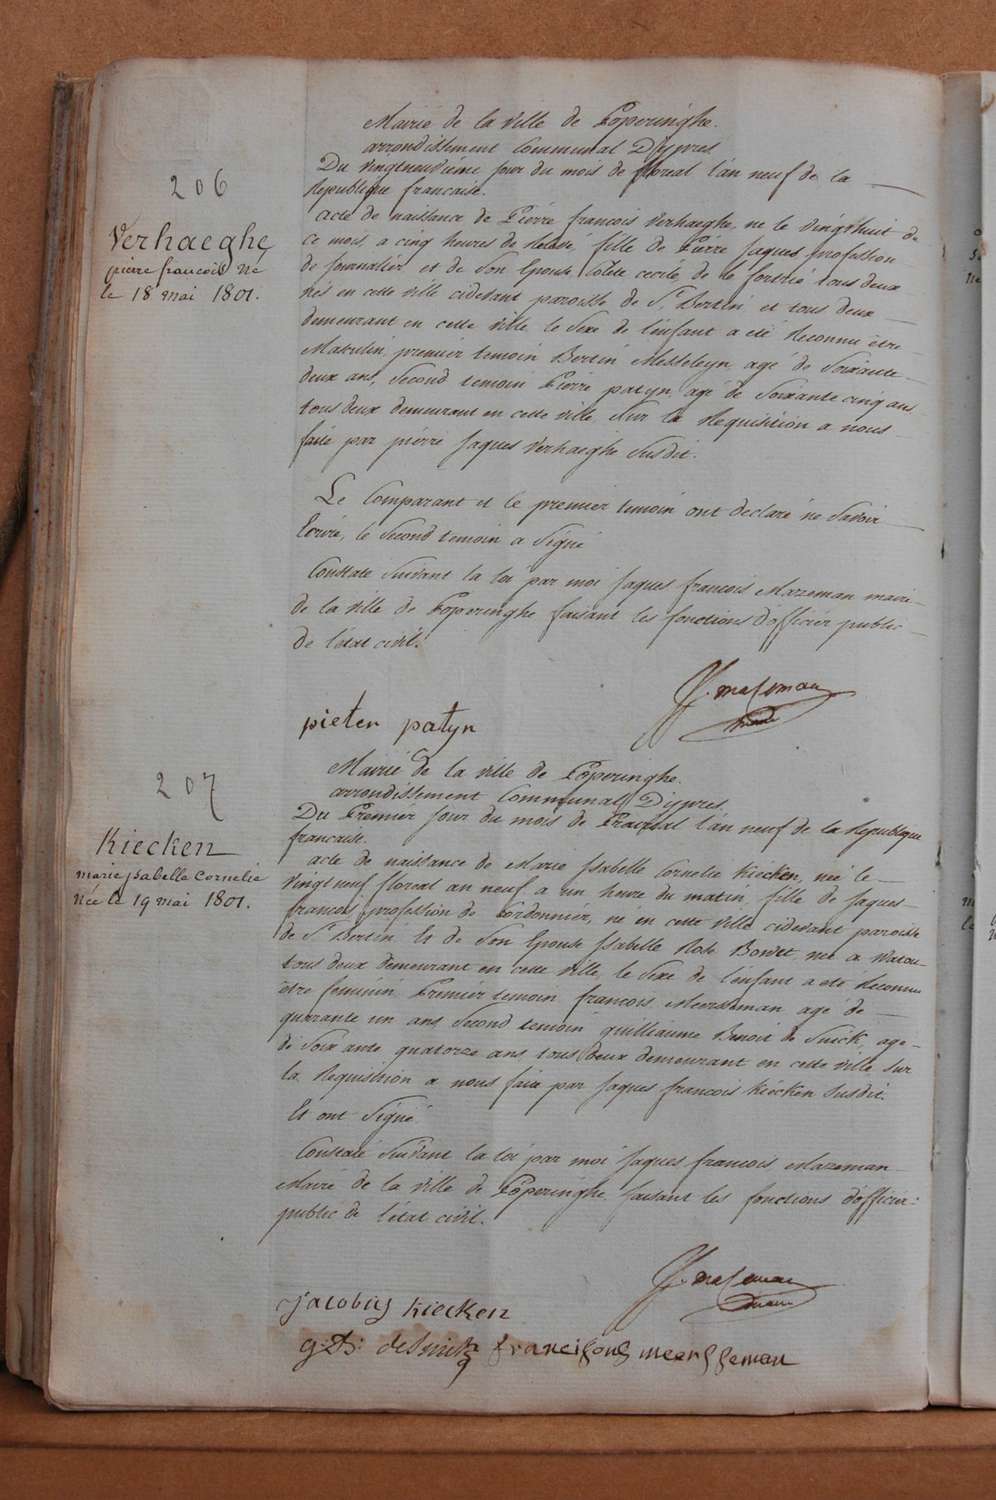 206
Verhaeghe
pierre francois né
le 18 mai 1801.
Mairie de la ville de Poperinghe.
arrondissement Communal D'ypres
Du vingtneuvieme jour du mois de floreal l'an neuf de la
Republique francaise.
acte de naissance de Pierre francois Verhaeghe, ne le vingthuit de
ce mois, a cinq heures de Releve, fille de Pierre Jaques profession
de Journalier et de Son Epouse Colete cecile de le fortrie tous deux
nés en cette ville cidevant paroisse de St. Bertin et tous deux
demeurant en cette ville le Sexe de l'enfant a eté Reconnu etre
Maskulin, premier temoin Bertin Messeleyn agé de Soixante
deux ans, Second temoin Pierre patyn agé de Soixante cinq ans
tous deux demeurant en cette ville, Sur la Requisition a nous
faite par pierre Jaques Verhaeghe Susdit.
Le Comparant et le premier temoin ont declaré ne Savoir
Ecrire, le Second temoin a Signé
Constaté Suivant la loi par moi Jaques francois Mazeman maire
de la ville de Poperinghe faisant les fonctions d'officier public
de l'etat civil.
J. mazeman
maire
pieter patyn
207
Kiecken
marie ysabelle Cornelie
née le 19 mai 1801.
Mairie de la ville de Poperinghe.
arrondissement Communal D'ypres
Du Premier jour du mois de Prairial l'an neuf de la Republique
francaise.
acte de naissance de Marie Isabelle Cornelie Kiecken, née le
vingt neuf floreal an neuf a un heure du matin, fille de Jaques
francois profession de Cordonnier, né en cette ville cidevant paroisse
de St. Bertin et de Son Epouse Isabelle Rose née a Watou
tous deux demeurant en cette ville, le Sexe de l'enfant a eté Reconnu
etre feminin Premier temoin francois Meersseman agé de
quarante un ans Second temoin guilliaume Benoit de Smick, agé
de Soixante quatorze ans tous deux demeurant en cette ville sur
la Requisition a nous faite par Jaques francois Kiecken susdit.
Et ont Signé
Constaté Suivant la loi par moi Jaques francois Mazeman
Maire de la ville de Poperinghe faisant les fonctions d'officier
public de l'etat civil.
J. mazeman
maire
Jacobus kiecken
franciscus meersseman